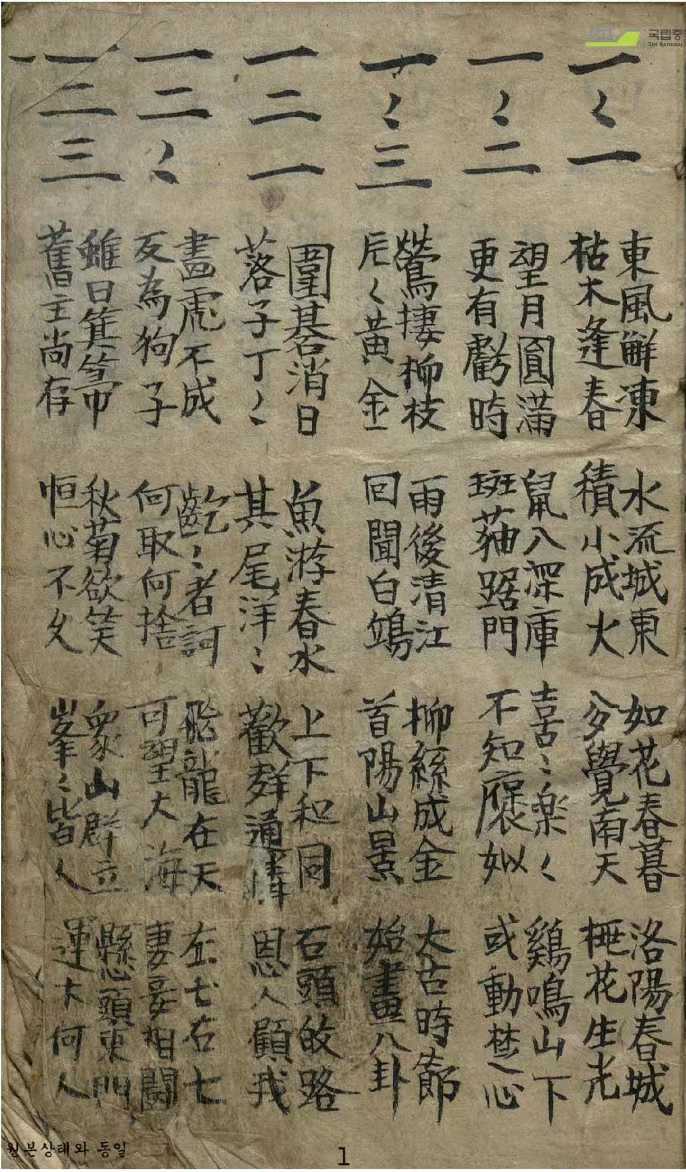 一〻一
東風解凍 水流城東 如花春暮 洛陽春城
枯木逢春 積小成大 覺南天 花生光
一〻二
望月圓滿 鼠入深庫 喜〻樂〻 鷄鳴山下
更有虧時 斑猫踞門 不知 或動楚心
一〻三
鶯捿柳枝 雨後清江 柳絲成金 太古時節
片〻黃金 回聞白鷗 首陽山景 始畫八卦
一二一
圍碁消日 魚游春水 上下和同 石頭 路
落子丁〻 其尾洋〻 歡群通情 恩人顧我
一二〻
畫虎不成 〻者訶 飛龍在天 左七右七
反為狗子 何取何捨 可望大海 妻妾相鬪
一二三
雖曰箕箒 秋菊欲笑 衆山群立 懸頭東門
舊主尚存 恒心不久 峯〻皆人 運 何人
원본상태와 동일
1
국립중